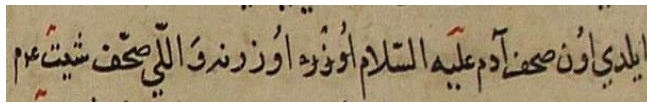 ايلدي اوُن صحف آدم عليه السّلام اوُزره اوُزرنه وَ اللّي صحف شيت عم